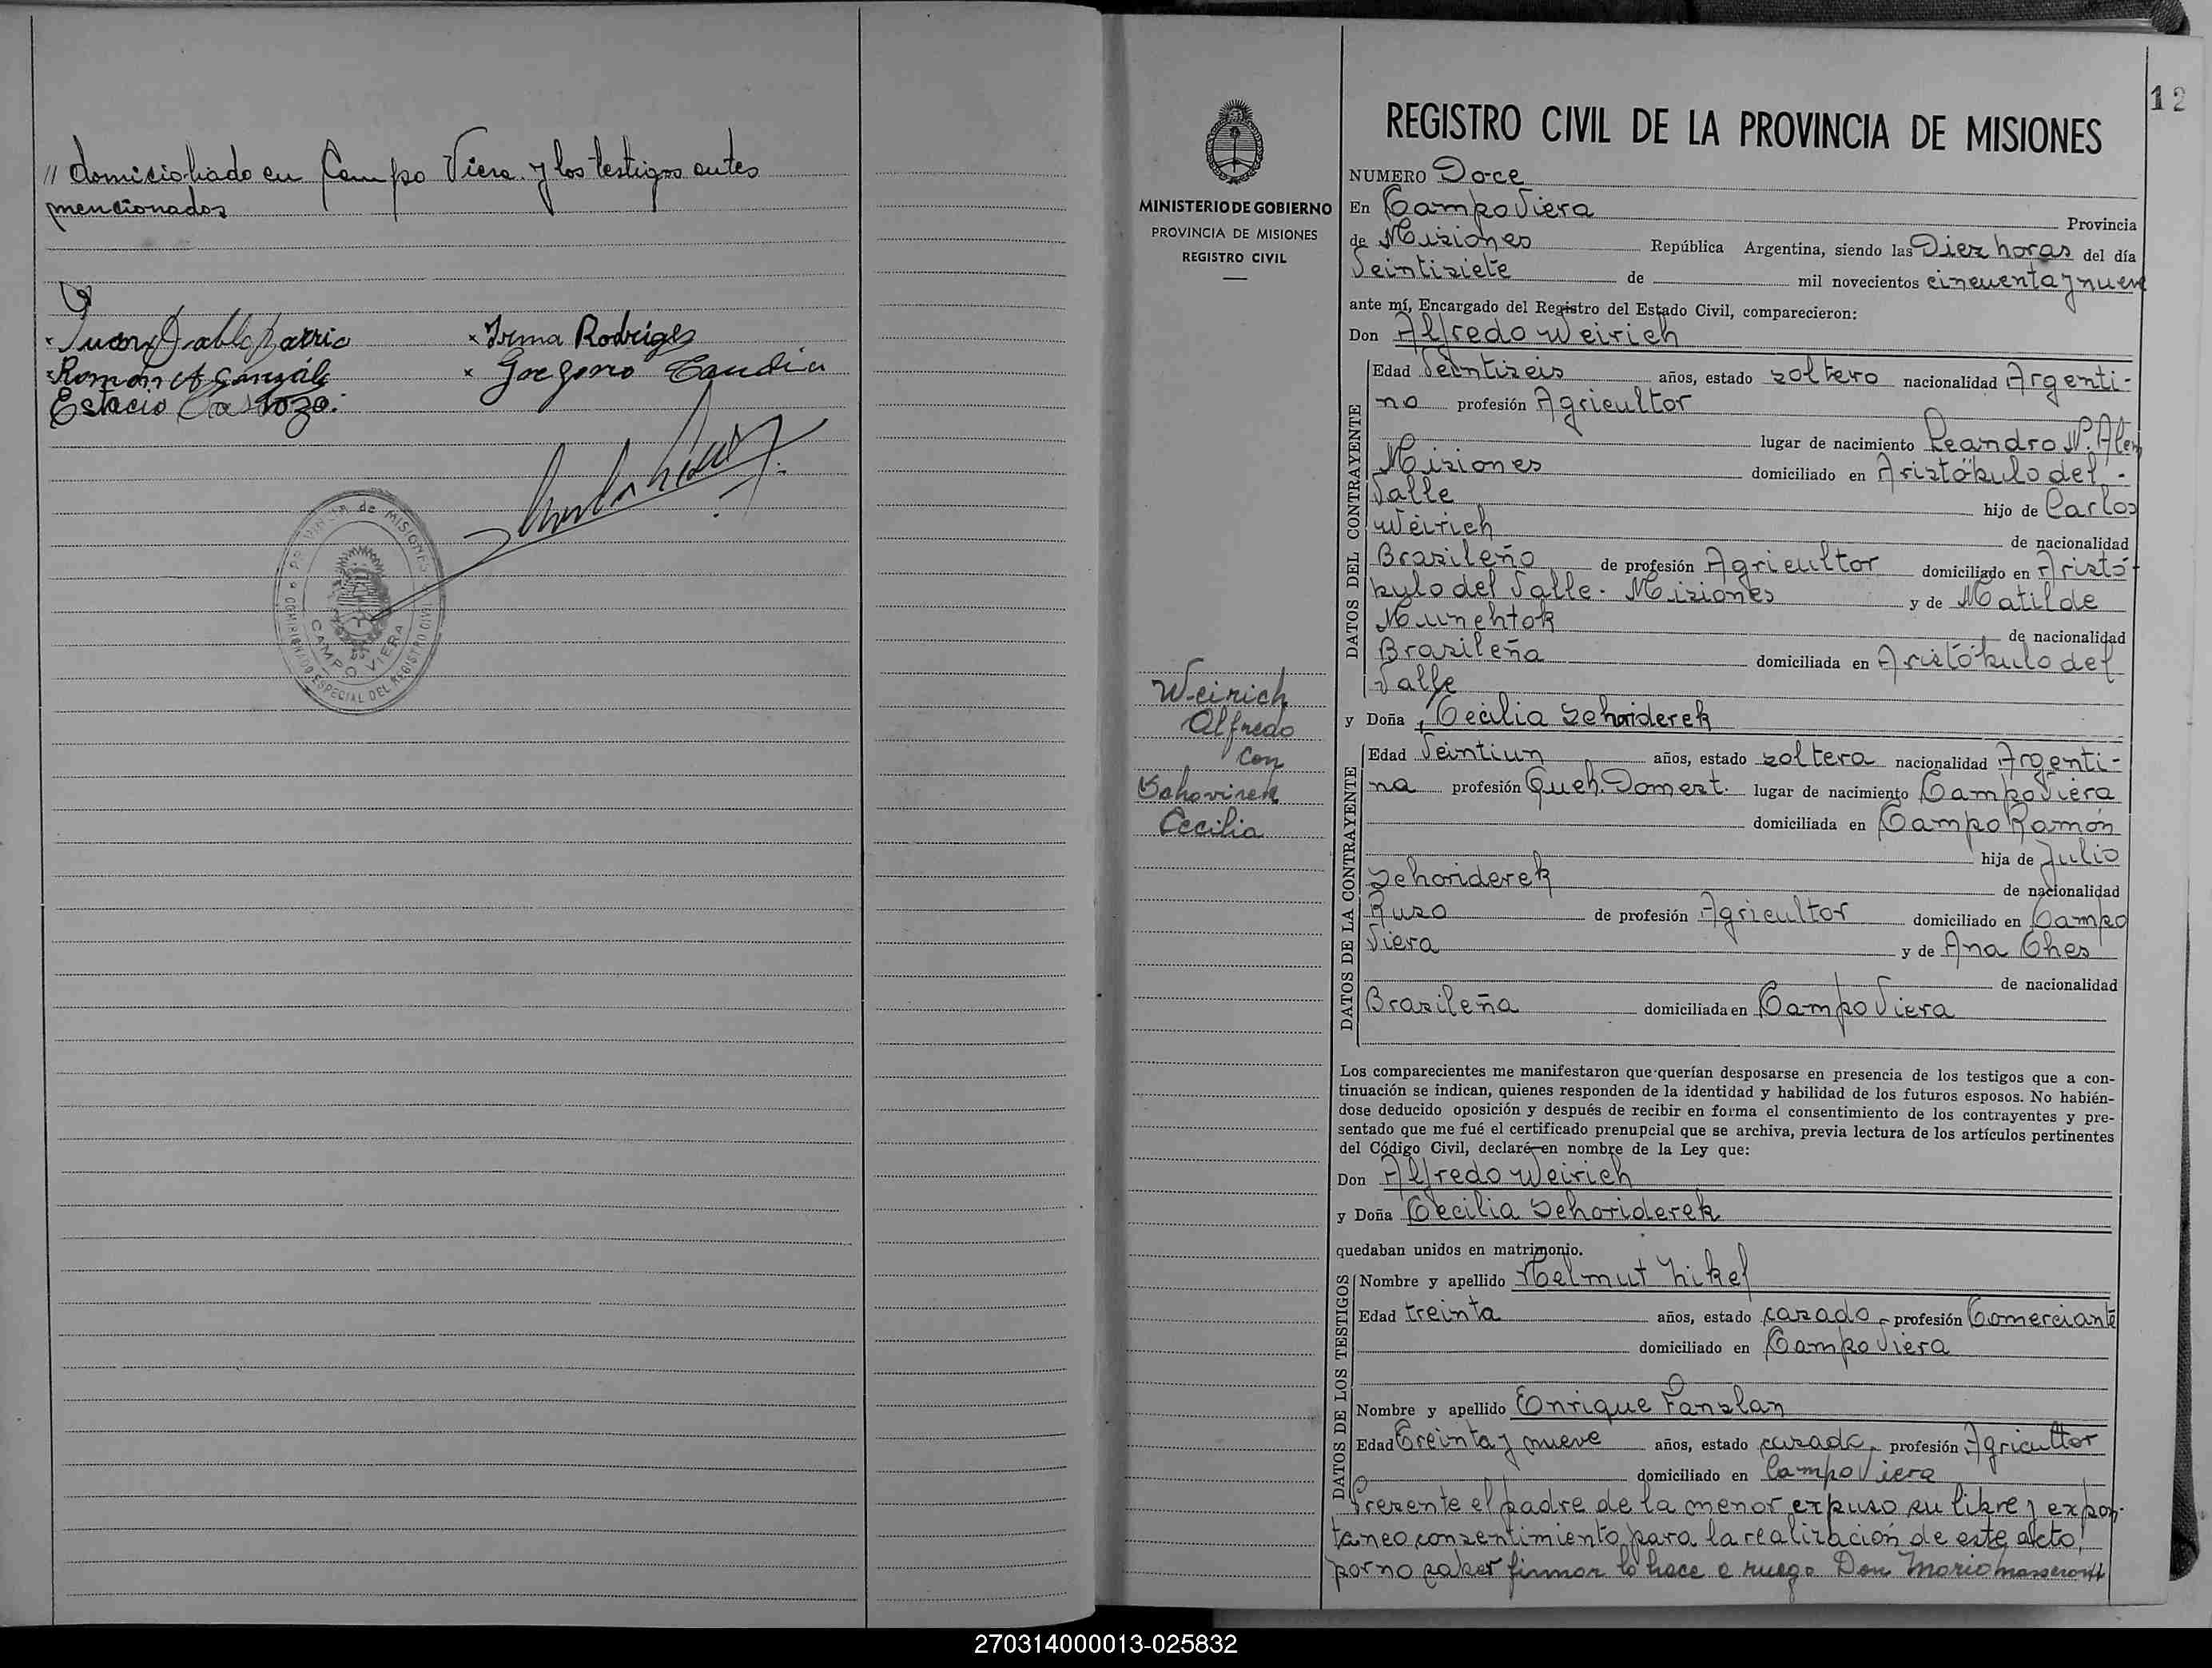 // domiciliado en Campo Viera y los testigos antes
mencionados
Juan Pablo
x Irma Rodriges
Roman A Gonzále
x Gregorio
Estacio
PROVINCIA de MISIONES
COMISIONADO ESPECIAL DEL REGISTRO CIVIL
CAMPO VIERA
12
MINISTERIO DE GOBIERNO
PROVINCIA DE MISIONES
REGISTRO CIVIL
Weirich
Alfredo
con
Cecilia
REGISTRO CIVIL DE LA PROVINCIA DE MISIONES
NUMERO Doce
En Campo Viera Provincia
de Misiones República Argentina, siendo las Diez horas del día
Veintisiete de mil novecientos cincuenta y nueve
ante mí, Encargado del Registro del Estado Civil, comparecieron:
Don Alfredo Weirich
DATOS DEL CONTRAYENTE
Edad Veintiseis años, estado soltero nacionalidad Argenti-
no profesión Agricultor
lugar de nacimiento Leandro N. Alem
Misiones domiciliado en Aristóbulo del -
Valle hijo de Carlos
Weirich de nacionalidad
Brasileño de profesión Agricultor domiciliado en Aristó-
bulo del Valle. Misiones y de Matilde
Munchtok de nacionalidad
Brasileña domiciliada en Aristóbulo del
Valle
y Doña Cecilia Schoriderek
DATOS DE LA CONTRAYENTE
Edad Veintiun años, estado soltera nacionalidad Argenti-
na profesión Queh. Domest. lugar de nacimiento Campo Viera
domiciliada en Campo Ramón
hija de Julio
Schoriderek de nacionalidad
Ruso de profesión Agricultor domiciliado en Campo
Viera y de Ana Ches
de nacionalidad
Brasileña domiciliada en Campo Viera
Los comparecientes me manifestaron que querían desposarse en presencia de los testigos que a con-
tinuación se indican, quienes responden de la identidad y habilidad de los futuros esposos. No habién-
dose deducido oposición y después de recibir en forma el consentimiento de los contrayentes y pre-
sentado que me fué el certificado prenupcial que se archiva, previa lectura de los artículos pertinentes
del Código Civil, declaré en nombre de la Ley que:
Don Alfredo Weirich
y Doña Cecilia Schoriderek
quedaban unidos en matrimonio.
DATOS DE LOS TESTIGOS
Nombre y apellido Helmut Hikel
Edad treinta años, estado casado profesión Comerciante
domiciliado en Campo Viera
Nombre y apellido Enrique Fanslan
Edad Treinta y nueve años, estado casado profesión Agricultor
domiciliado en Campo Viera
Presente el padre de la menor expuso su libre y expon-
taneo consentimiento para la realización de este acto,
por no saber firmar lo hace a ruego Don Mario
270314000013-025832